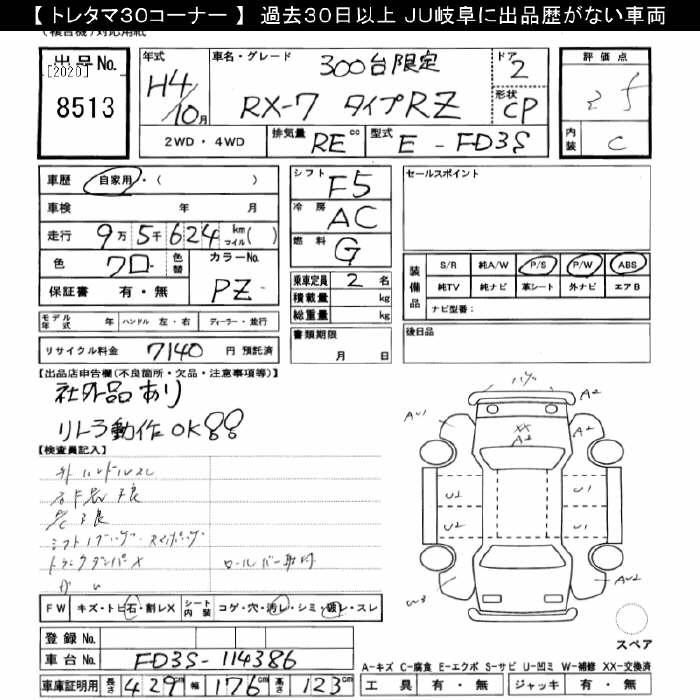 【トレタマ30コーナー】 過去30日以上 JU岐阜に出品歴がない車両
出品No.
[2020]
8513
年式
H4/10月
車名・グレード
300台限定
RX-7 タイプRZ
ドア
2
形状
CP
評価点
内装
C
2WD・4WD
排気量 RE cc
型式 E-FD3S
車歴 自家用・( )
車検 年 月
走行 9万5千624 km マイル( )
色 クロ 色替 カラーNo. PZ
保証書 有・無
モデル年式 年 ハンドル 左・右 ディーラー・並行
リサイクル料金 7140 円 預託済
シフト F5
冷房 AC
燃料 G
乗車定員 2 名
積載量 kg
総重量 kg
書類期限
月 日
セールスポイント
装備品
S/R 純A/W P/S P/W ABS
純TV 純ナビ 革シート 外ナビ エアB
ナビ型番:
後日品
【出品店申告欄(不良箇所・欠品・注意事項等)】
社外品あり
リトラ動作OK!!
【検査員記入】
ロールバー取付
FW キズ・トビ石・割レX シート内装 コゲ・穴・汚レ・シミ・破レ・スレ
A2
A2
XX
A2
U1
U1
U2
U1
W3
スペア
登録No.
車台No. FD3S-114386
車庫証明用 長さ 429cm 幅 176cm 高さ 123cm
A-キズ C-腐食 E-エクボ S-サビ U-凹ミ W-補修 XX-交換済
工具 有・無 ジャッキ 有・無